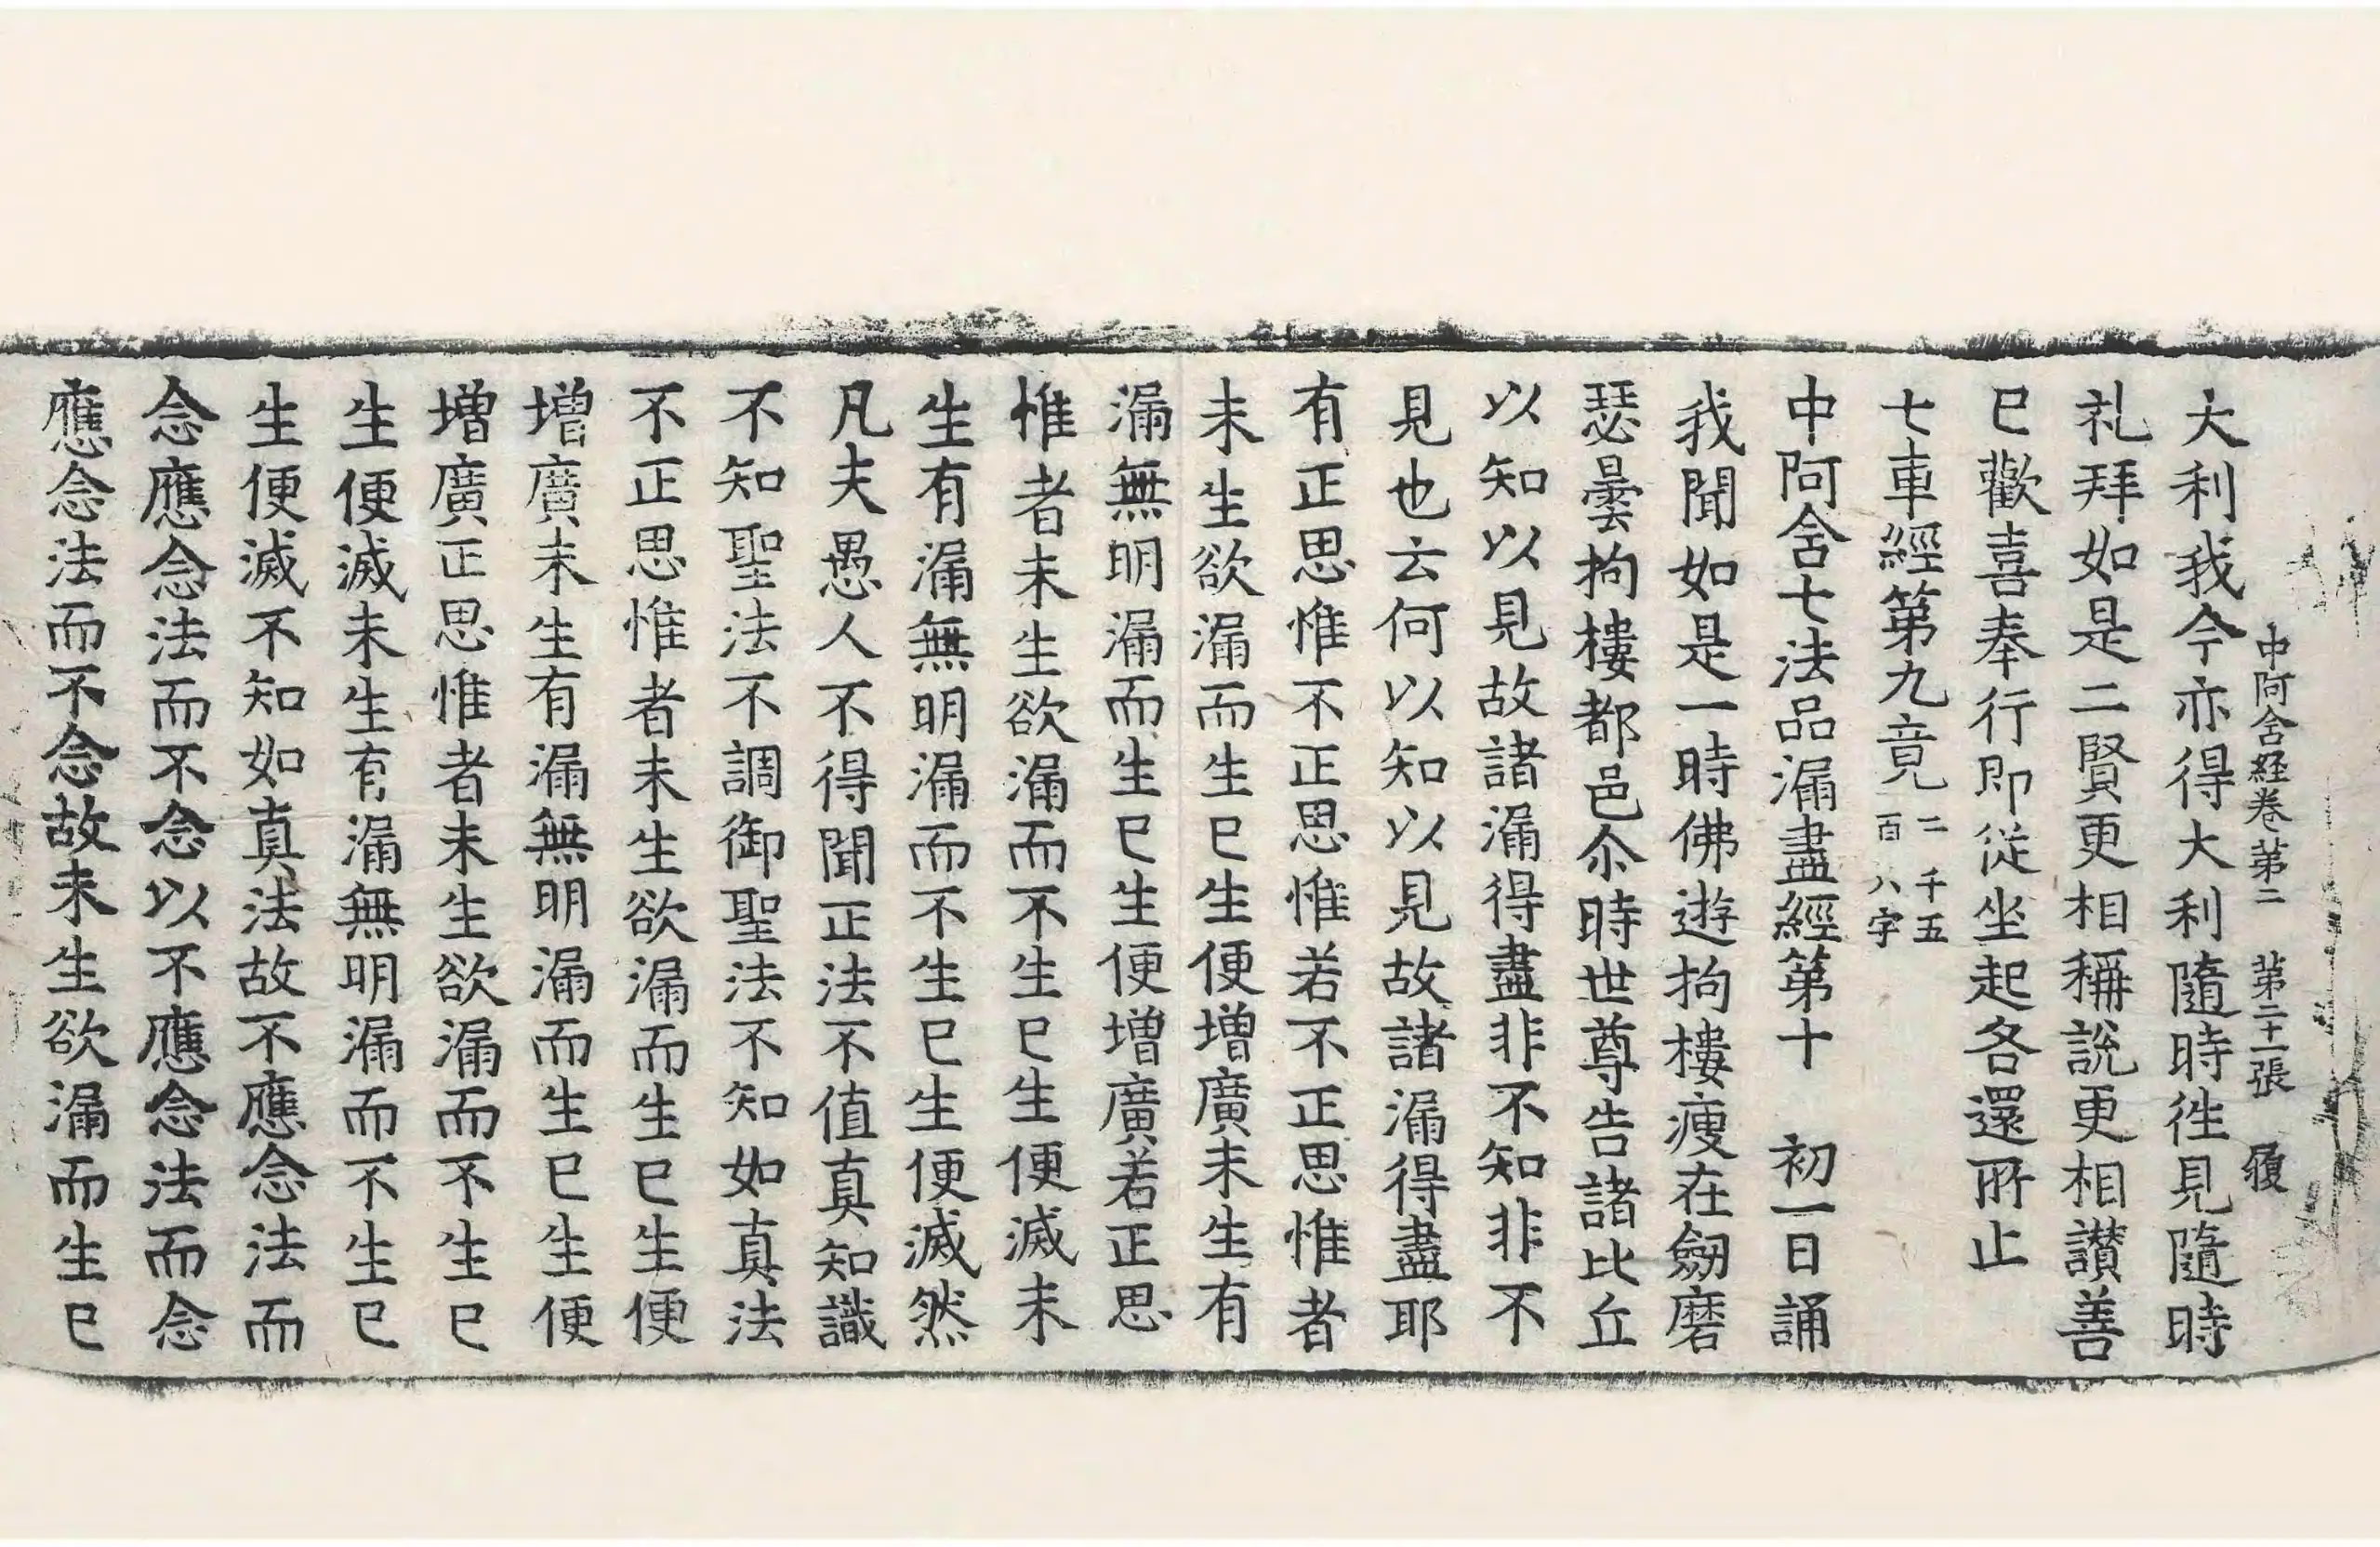 中阿含经卷第二 第二十一張 履
大利我今亦得大利隨時徃見隨時
礼拜如是二賢更相稱説更相讃善
已歡喜奉行即從坐起各還所止
七車經第九竟二千五百八字
中阿含七法品漏盡經第十 初一日誦
我聞如是一時佛遊拘樓瘦在劒磨
瑟曇拘樓都邑尒時世尊告諸比丘
以知以見故諸漏得盡非不知非不
見也云何以知以見故諸漏得盡耶
有正思惟不正思惟若不正思惟者
未生欲漏而生已生便增廣未生有
漏無明漏而生已生便增廣若正思
惟者未生欲漏而不生已生便滅未
生有漏無明漏而不生已生便滅然
凡夫愚人不得聞正法不值真知識
不知聖法不調御聖法不知如真法
不正思惟者未生欲漏而生已生便
增廣未生有漏無明漏而生已生便
增廣正思惟者未生欲漏而不生已
生便滅未生有漏無明漏而不生已
生便滅不知如真法故不應念法而
念應念法而不念以不應念法而念
應念法而不念故未生欲漏而生已